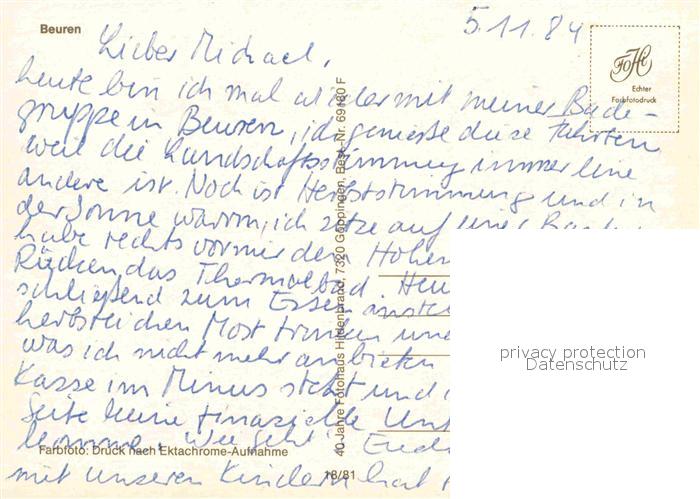 Beuren
5.11.84
Lieber Michael,
FoHi
Echter
Farbfotodruck
heute bin ich mal wieder mit meiner Bade-
gruppe in Beuren, ich genieße diese Fahrten
weil die Landschaftsstimmung immer eine
andere ist. Noch ist Herbststimmung und in
der Sonne warm, ich sitze auf einer
habe rechts vor mir den Hohen
Rücken das Thermalbad. Heu
schließend zum Essen
herbstlichen Most trinken und
was ich nicht mehr anbieten
Kasse im Minus steht und
Seite keine finanzielle Unt
komme. Wie geht's Euch
mit unseren Kindern hat
40 Jahre Fotohaus Hildenbrand, 7320 Göppingen, Best.-Nr. 69180 F
Farbfoto: Druck nach Ektachrome-Aufnahme
18/81
privacy protection
Datenschutz